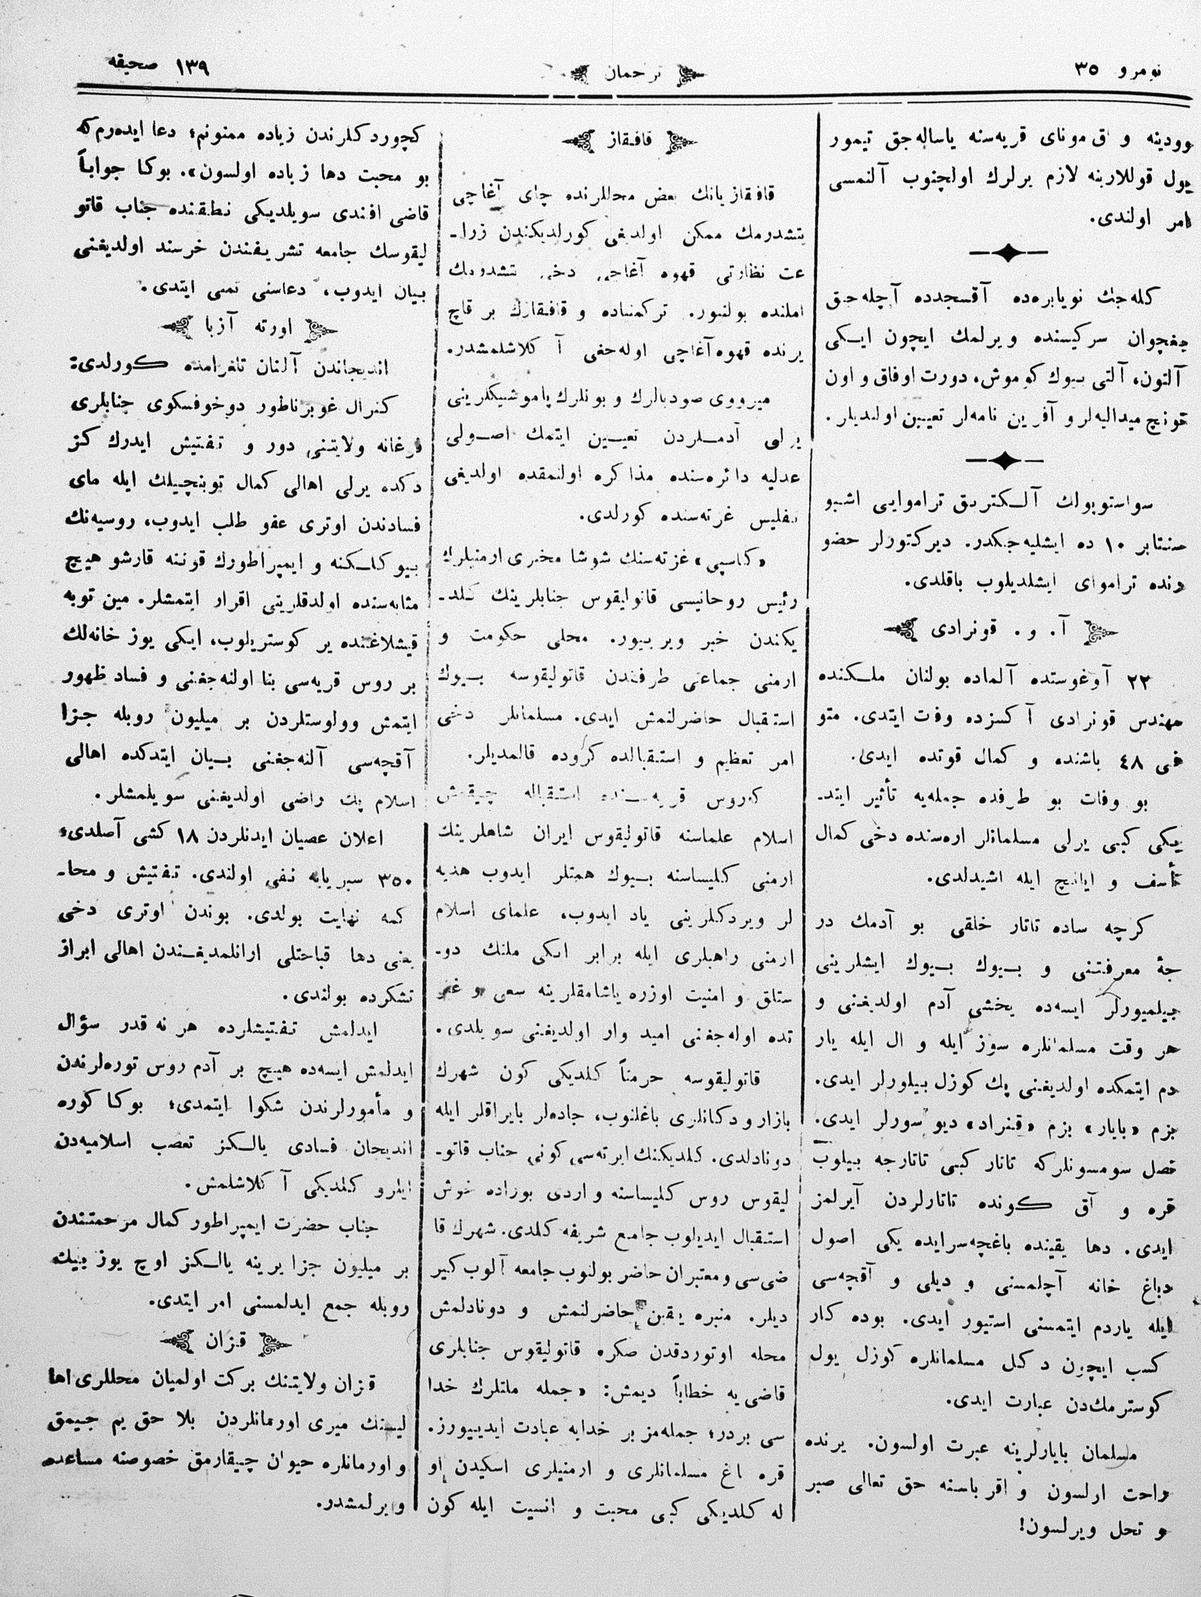 نومرو ۳۵
ترجمان
۱۳۹ صحیفه
وودینه و اق موناى قریه‌سنه یاساله‌جق تیمور
یول قوللارینه لازم یرلرك اولچنوب آلنمسى
امر اولندى.
كله‌جك نویابره‌ده آقسجدده آچله‌جق
بغچوان سركیسنده ویرلمك ایچون ایكى
آلتون، آلتى بیوك كوموش، دورت اوفاق و اون
تونج میدالیه‌لر و آفرین نامه‌لر تعیین اولندیلر.
سواستوپولك آلكتریق تراموایى اشبو
سنتابر ۱۰ ده ایشلیه‌جكدر. دیركتورلر حضو
رنده تراموای ایشلدیلوب باقلدى.
آ. و. قونرادى
۲۲ آوغوستده آلماده بولنان ملكنده
مهندس قونرادى آكسزده وفات ایتدى. متو
فى ۴۸ باشنده و كمال قوتده ایدى.
بو وفات بو طرفده جمله‌یه تأثیر ایتد-
یكى كبى یرلى مسلمانلر اره‌سنده دخى كمال
تأسف و ایانچ ایله اشیدلدى.
كرچه ساده تاتار خلقى بو آدمك در
جۀ معرفتنى و بیوك بیوك ایشلرینى
بیلمیورلر ایسه‌ده یخشى آدم اولدیغنى و
هر وقت مسلمانلره سوز ایله و ال ایله یار
دم ایتمكده اولدیغنى پك كوزل بیلورلر ایدى.
بزم «بایار» بزم «قنراد» دیو سورلر ایدى.
نصل سومسونلركه تاتار كبى تاتارجه بیلوب
قره و آق كونده تاتارلردن آیرلمز
ایدى. دها یقینده باغچه‌سرایده یكى اصول
دباغ خانه آچلمسنى و دیلى و آقچه‌سى
ایله یاردم ایتمسنى استیور ایدى. بوده كار
كسب ایچون دكل مسلمانلره كوزل یول
كوسترمك‌دن عبارت ایدى.
مسلمان بایارلرینه عبرت اولسون. یرنده
راحت اولسون و اقرباسنه حق تعالى صبر
و تحمل ویرلسون!
قافقاز
قافقازیانك بعض محللرنده چاى آغاچى
یتشدرمك ممكن اولدیغى كورلدیكندن زرا-
عت نظارتى قهوه آغاجى دخى یتشدرمك
املنده بولنیور. تركمنیاده و قافقازك بر قاچ
یرنده قهوه آغاچى اوله‌جغى آكلاشلمشدر.
میرووى صودیالرك و بونلرك پاموشنیكلرینى
یرلى آدملردن تعیین ایتمك اصولى
عدلیه دائره‌سنده مذاكره اولنمقده اولدیغى
تفلیس غزته‌سنده كورلدى.
«كاسپى» غزته‌سنك شوشا مخبرى ارمنیلرك
رئیس روحانیسى قاتولیقوس جنابلرینك كلد-
یكندن خبر ویریور. محلى حكومت و
ارمنى جماعتى طرفندن قاتولیقوسه بیوك
استقبال حاضرلنمش ایدى. مسلمانلر دخى
امر تعظیم و استقبالده كروده قالمدیلر.
كوروس قریه‌سنده استقباله چیقمش
اسلام علماسنه قاتولیقوس ایران شاهلرینك
ارمنى كلیساسنه بیوك همتلر ایدوب هدیه
لر ویردكلرینى یاد ایدوب، علماى اسلام
ارمنى راهبلرى ایله برابر ایكى ملتك دو-
ستلق و امنیت اوزره یاشامقلرینه سعى و غیر
تده اوله‌جغنى امید وار اولدیغنى سویلدى.
قاتولیقوسه حرمتاً كلدیكى كون شهرك
بازار و دكانلرى باغلنوب، جاده‌لر بایراقلر ایله
دونادلدى. كلدیكنك ایرته‌سى كونى جناب قاتو-
لیقوس روس كلیساسنه واردى بوراده خوش
استقبال ایدیلوب جامع شریفه كلدى. شهرك قا
ضى‌سى و معتبران حاضر بولنوب جامعه آلوب كیر
دیلر. منبره یقین حاضرلنمش و دونادلمش
محله اوتوردقدن صكره قاتولیقوس جنابلرى
قاضى‌یه خطاباً دیمش: «جمله ملتلرك خدا
سى بردر؛ جمله‌مز بر خدایه عبادت ایدییورز.
قره باغ مسلمانلرى و ارمنیلرى اسكیدن او
له كلدیكى كبى محبت و انسیت ایله كون
كچوردكلرندن زیاده ممنونم؛ دعا ایده‌رم كه
بو محبت دها زیاده اولسون». بوكا جواباً
قاضى افندى سویلدیكى نطقنده جناب قاتو
لیقوسك جامعه تشریفندن خرسند اولدیغنى
بیان ایدوب، دعاسنى تمنى ایتدى.
اورته آزیا
اندیجاندن آلنان تلغرامده كورلدى:
كنرال غوبرناطور دوخوفسكوى جنابلرى
فرغانه ولایتنى دور و تفتیش ایدرك كز
دكده یرلى اهالى كمال توبنچیلك ایله ماى
فسادندن اوترى عفو طلب ایدوب، روسیه‌نك
بیوكلكنه و ایمپراطورك قوتنه قارشو هیچ
مثابه‌سنده اولدقلرینى اقرار ایتمشلر. مین توبه
قیشلاغنده یر كوستریلوب، ایكى یوز خانه‌لك
بر روس قریه‌سى بنا اولنه‌جغنى و فساد ظهور
ایتمش وولوستلردن بر میلیون روبله جزا
آقچه‌سى آلنه‌جغنى بیان ایتدكده اهالى
اسلام پك راضى اولدیغنى سویلمشلر.
اعلان عصیان ایدنلردن ۱۸ كشى آصلدى؛
۳۵۰ سبریایه نفى اولندى. تفتیش و محا-
كمه نهایت بولدى. بوندن اوترى دخى
یعنى دها قباحتلى ارانلمدیغندن اهالى ابراز
تشكرده بولندى.
ایدلمش تفتیشلرده هر نه قدر سؤال
ایدلمش ایسه‌ده هیچ بر آدم روس توره‌لرندن
و مأمورلرندن شكوا ایتمدى؛ بوكا كوره
اندیجان فسادى یالكز تعصب اسلامیه‌دن
ایلرو كلدیكى آكلاشلمش.
جناب حضرت ایمپراطور كمال مرحمتندن
بر میلیون جزا یرینه یالكز اوچ یوز بیك
روبله جمع ایدلمسنى امر ایتدى.
قزان
قزان ولایتنك بركت اولمیان محللرى اها
لیسنك میرى اورمانلردن بلا حق یم جیمق
و اورمانلره حیوان چیقارمق خصوصنه مساعده
ویرلمشدر.